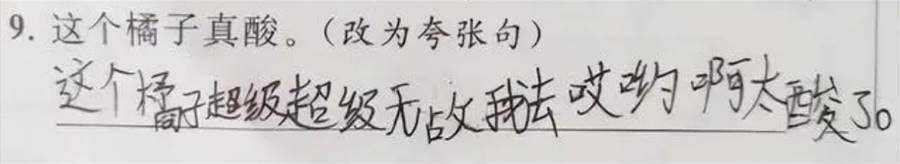 9. 这个橘子真酸。(改为夸张句)
这个橘子超级超级无敌我去哎哟啊太酸了。